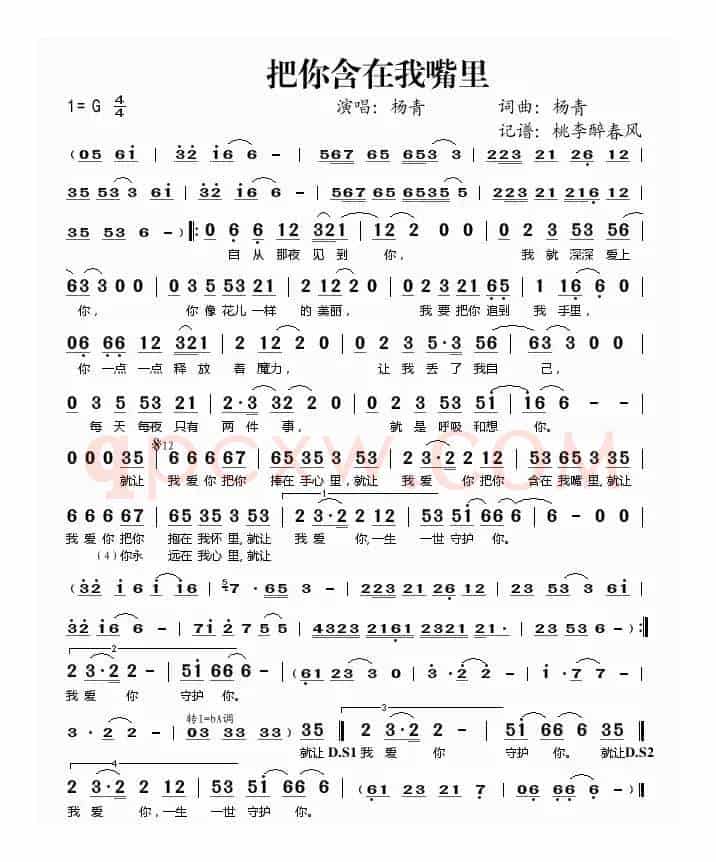 把你含在我嘴里
1=G 4/4 演唱：杨青 词曲：杨青
记谱：桃李醉春风
(05 61 | 32 16 6 - | 567 65 653 3 | 223 21 26 12
35 53 3 61 | 32 16 6 - | 567 65 65 35 5 | 223 21 216 12 |
35 53 6 -) ‖: 0 6 6 12 321 | 12 2 0 0 | 0 2 3 53 56 |
自从那夜见到你， 我就深深爱上
63 3 0 0 | 03 35 53 21 | 2 12 2 0 | 0 2 3 21 65 | 1 16 6 0 |
你， 你像花儿一样 的美丽， 我要把你追到 我手里，
06 66 12 321 | 2 12 2 0 | 0 2 3 5·3 56 | 63 3 0 0 |
你一点一点释放 着魔力， 让我丢了我自 己，
0 3 5 53 21 | 2·3 32 2 0 | 0 2 3 53 51 | 16 6 - - |
每天每夜只有 两件事， 就是呼吸和想 你。
qpcxw.com
0 0 0 35 | 6 6 6 67 | 65 35 3 53 | 2 3·2 2 12 | 53 65 35 35 |
就让 我爱你把你 捧在手心里，就让 我爱 你把你 含在我嘴里，就让
6 6 6 67 | 65 35 3 53 | 2 3·2 2 12 | 53 51 66 6 | 6 - 0 0 |
我爱你把你 抱在我怀里，就让 我爱 你，一生 一世守护 你。
(4)你永 远在我心里，就让
(32 1 6 1 16 | 7· 65 3 - | 223 21 26 12 | 23 53 3 61 |
32 16 6 - | 71 2 7 5 5 | 4323 2161 2321 21· | 23 53 6 -) :‖
2 3·2 2 - | 51 66 6 - | (61 23 3 0 | 3· 2 2 - | 1· 7 7 -
我爱 你 守护 你。
转1=bA调
3· 2 2 - | 03 33 33) 35 ‖ 2 3·2 2 - | 51 66 6 35 ‖
就让 D.S1 我爱 你 守护 你。 就让D.S2
2 3·2 2 12 | 53 51 66 6 | 6 - - - | (61 23 21 23 | 6 - - -) ‖
我爱 你，一生 一世守护 你。